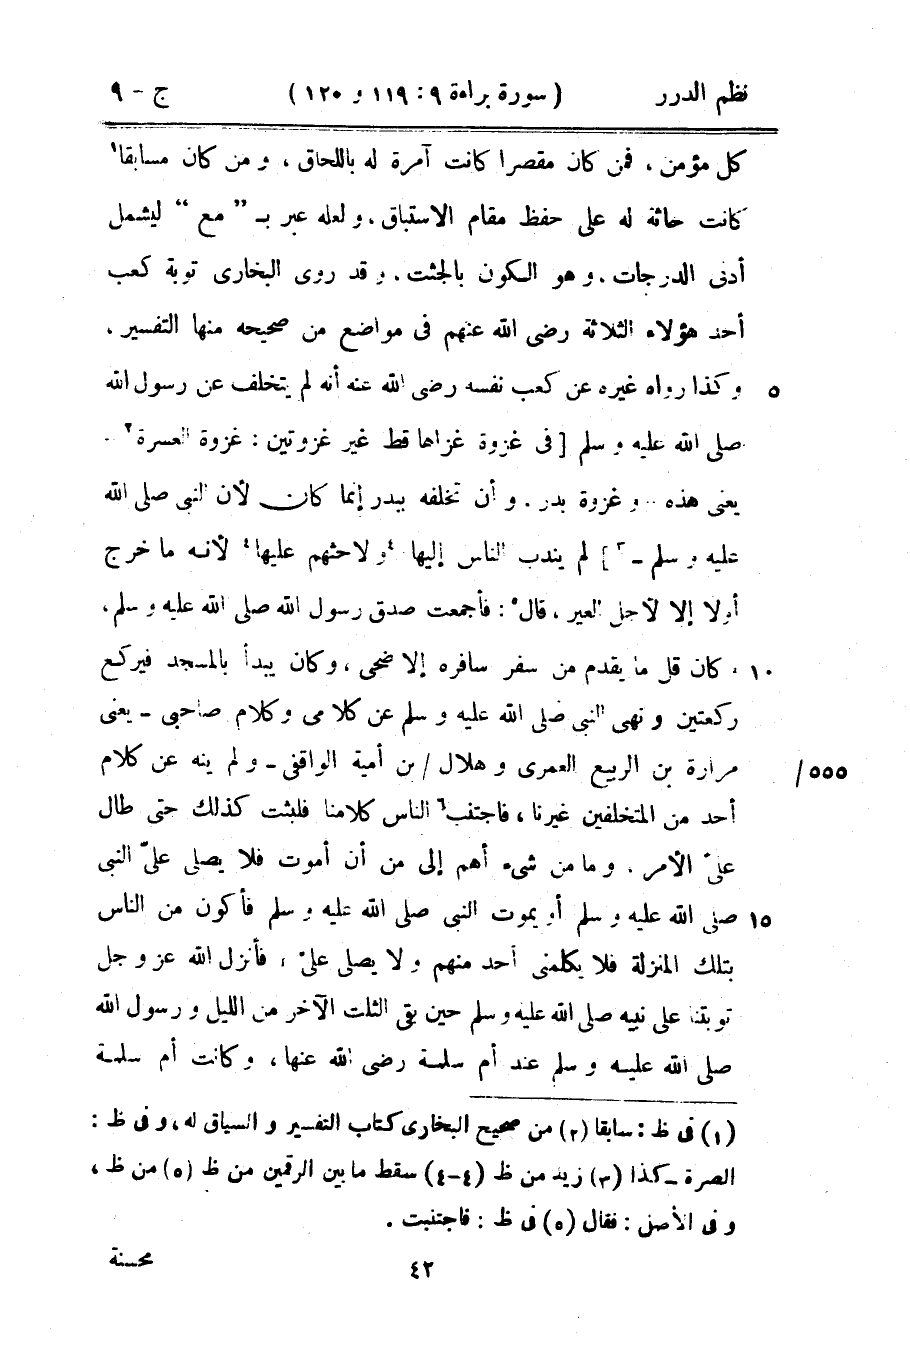 نظم الدرر ( سورة براءة ٩ : ١١٩ و ١٢٠ ) ج - ٩
كل مؤمن ، فمن كان مقصرا كانت آمرة له باللحاق ، و من كان مسابقا١
كانت حاثة له على حفظ مقام الاستباق ، و لعله عبر بـ ” مع “ ليشمل
أدنى الدرجات ، و هو الكون بالجثث . و قد روى البخارى توبة كعب
أحد هؤلاء الثلاثة رضى الله عنهم فى مواضع من صحيحه منها التفسير ،
٥ و كذا رواه غيره عن كعب نفسه رضى الله عنه أنه لم يتخلف عن رسول الله
صلى الله عليه و سلم [ فى غزوة غزاها قط غير غزوتين : غزوة العسرة٢ -
يعنى هذه - و غزوة بدر . و أن تخلفه ببدر إنما كان لأن النبى صلى الله
عليه و سلم - ٣ ] لم يندب الناس إليها ٤و لا حثهم عليها٤ لأنه ما خرج
أولا إلا لأجل العير ، قال٥ : فأجمعت صدق رسول الله صلى الله عليه و سلم ،
١٠ ، كان قل ما يقدم من سفر سافره إلا ضحى ، و كان يبدأ بالمسجد فيركع
ركعتين و نهى النبى صلى الله عليه و سلم عن كلامى و كلام صاحبى - يعنى
مرارة بن الربيع العمرى و هلال / بن أمية الواقفى - و لم ينه عن كلام /٥٥٥
أحد من المتخلفين غيرنا ، فاجتنب٦ الناس كلامنا فلبثت كذلك حتى طال
علىّ الأمر . و ما من شىء أهم إلى من أن أموت فلا يصلى علىّ النبى
١٥ صلى الله عليه و سلم أو يموت النبى صلى الله عليه و سلم فأكون من الناس
بتلك المنزلة فلا يكلمنى أحد منهم و لا يصلى علىّ ، فأنزل الله عز و جل
توبتنا على نبيه صلى الله عليه و سلم حين بقى الثلث الآخر من الليل و رسول الله
صلى الله عليه و سلم عند أم سلمة رضى الله عنها ، و كانت أم سلمة
(١) فى ظ : سابقا (٢) من صحيح البخارى كتاب التفسير و السياق له ، و فى ظ :
الصرة - كذا (٣) زيد من ظ (٤-٤) سقط ما بين الرقمين من ظ (٥) من ظ ،
و فى الأصل : فقال (٥) فى ظ : فاجتنبت .
٤٢ محسنة